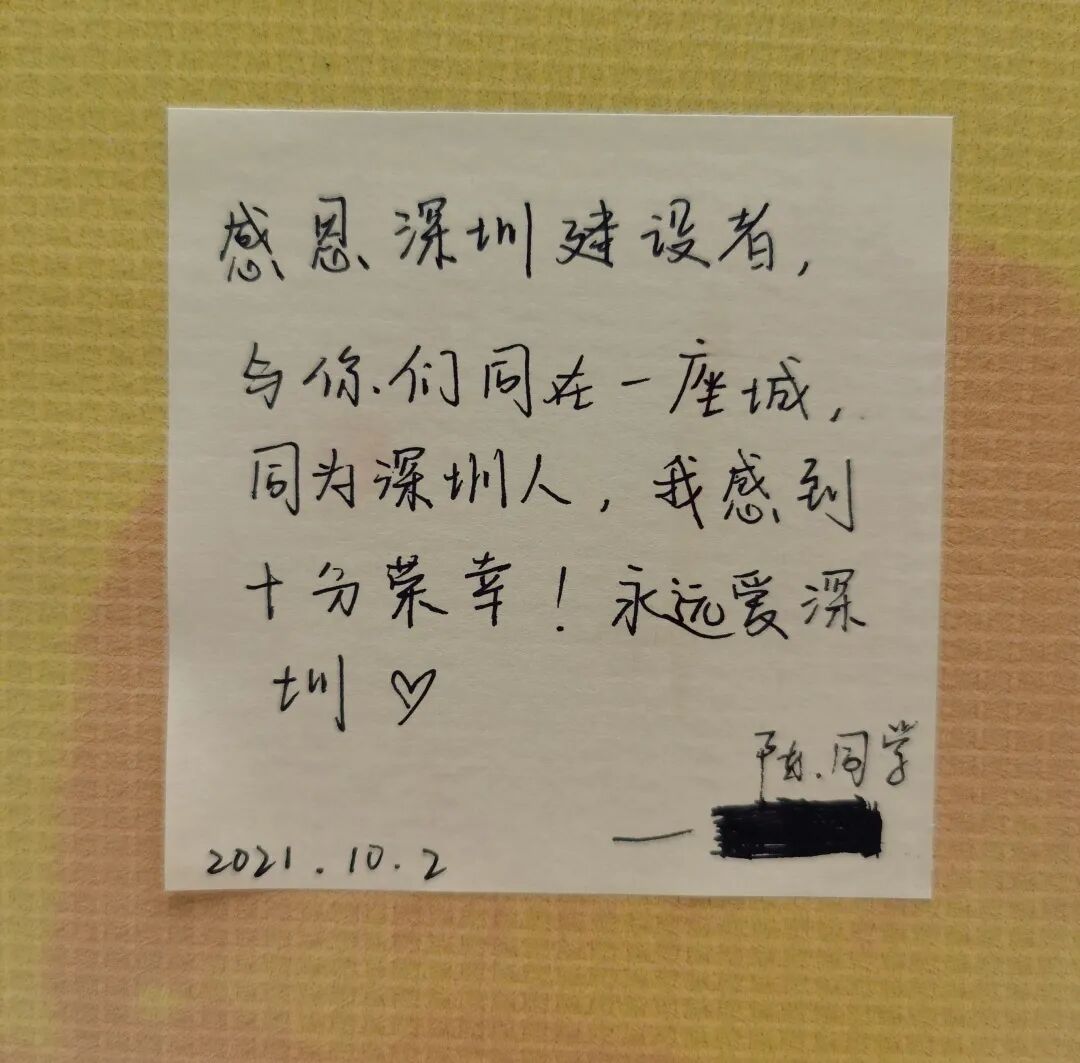 感恩深圳建设者,
与你们同在一座城,
同为深圳人,我感到
十分荣幸!永远爱深
圳♡
陈同学
—
2021.10.2